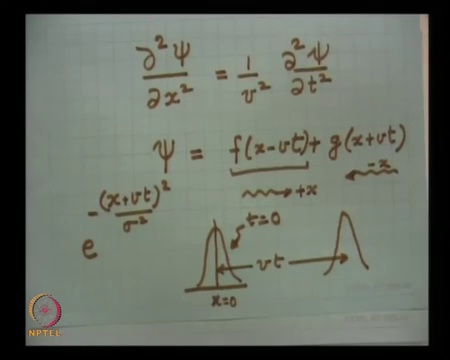 ∂²Ψ/∂x² = 1/v² ∂²Ψ/∂t²
Ψ = f(x-vt) + g(x+vt)
+x
-x
e^-(x+vt)²/σ²
t=0
vt
x=0
NPTEL